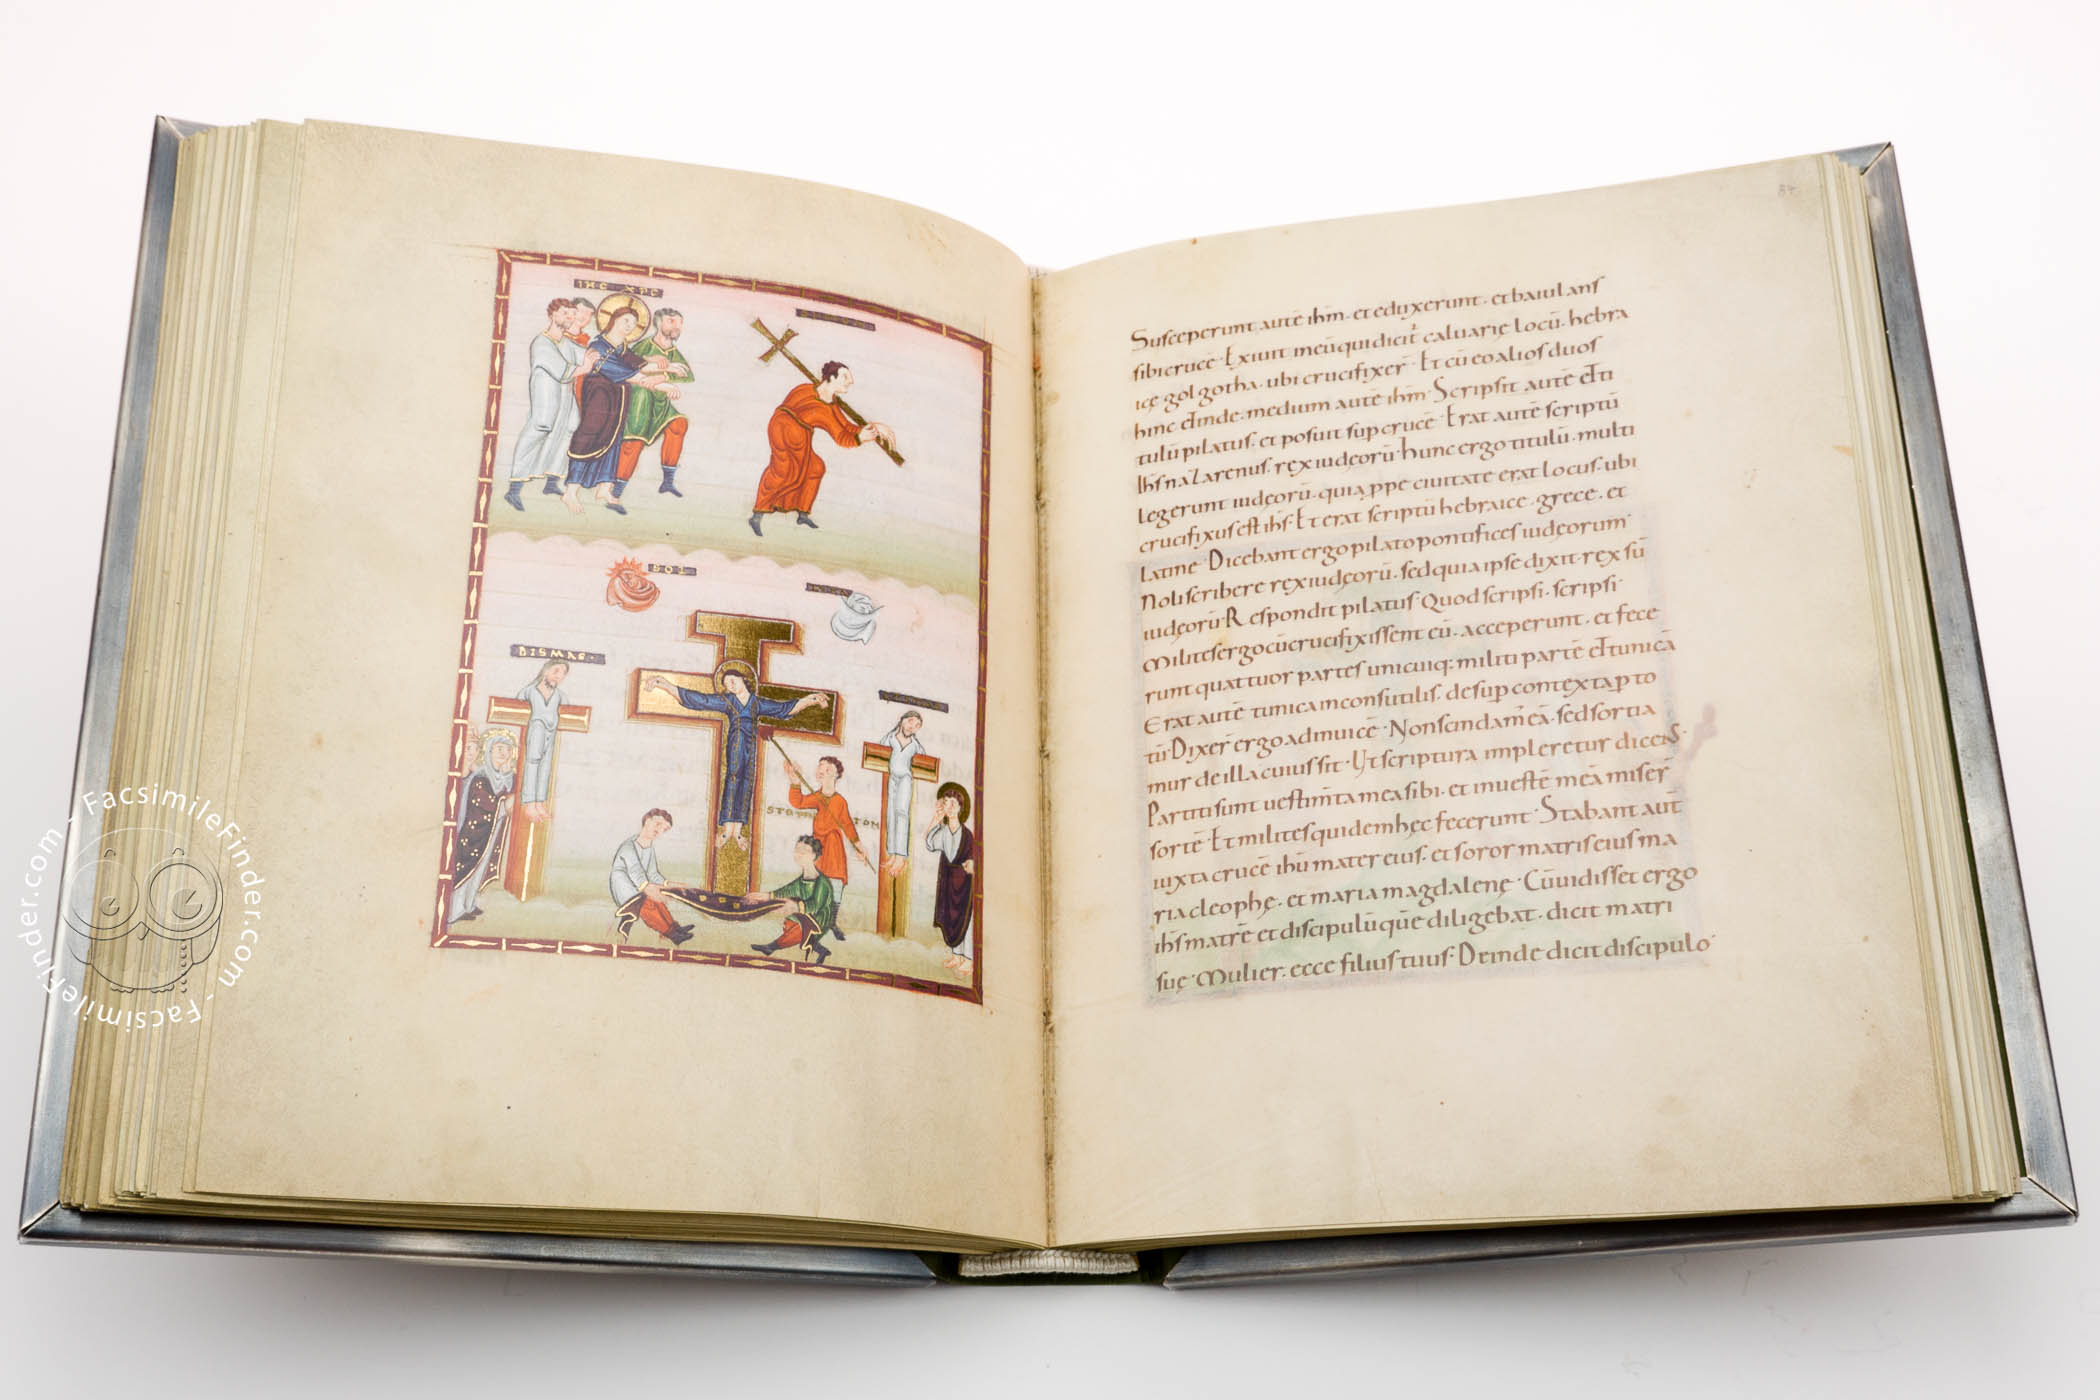 IHC XPC
SOL
DISMAS.
STEPHATON
84
Susceperunt autē ihm̄. et eduxerunt. et baiulans
sibi crucē. Exiuit in eū qui dicit᷑ caluarię locū. hebra
icę golgotha. ubi crucifixer̄. Et cū eo alios duos
hinc et inde. medium autē ihm̄. Scripsit autē et ti
tulū pilatus. et posuit sup crucē. Erat autē scriptū
Ihs nazarenus. rex iudęorū. hunc ergo titulū. multi
legerunt iudęorū. quia ꝓpe ciuitate erat locus. ubi
crucifixus est ihs. Et erat scriptū hebraice. grece. et
latine. Dicebant ergo pilato pontifices iudęorum
Noli scribere rex iudęorū. sed quia ipse dixit. rex sū
iudęorū. Respondit pilatus. Quod scripsi. scripsi
Milites ergo cū crucifixissent eū. acceperunt. et fece
runt quattuor partes unicuiq; militi partē et tunicā
Erat autē tunica inconsutilis. desup contexta ꝑ to
tū. Dixer̄ ergo adinuicē. Non scindam̄ eā. sed sortia
mur de illa cuius sit. Ut scriptura impleretur dicens
Partiti sunt uestim̄ta mea sibi. et in uestē meā miser̄
sortē. Et milites quidem hęc fecerunt. Stabant aut̄
iuxta crucē ihū mater eius. et soror matris eius ma
ria cleophę. et maria magdalenę. Cū uidisset ergo
ihs matrē et discipulū quē diligebat. dicit matri
suę. Mulier. ecce filius tuus. Deinde dicit discipulo
FacsimileFinder.com - FacsimileFinder.com - FacsimileFinder.com